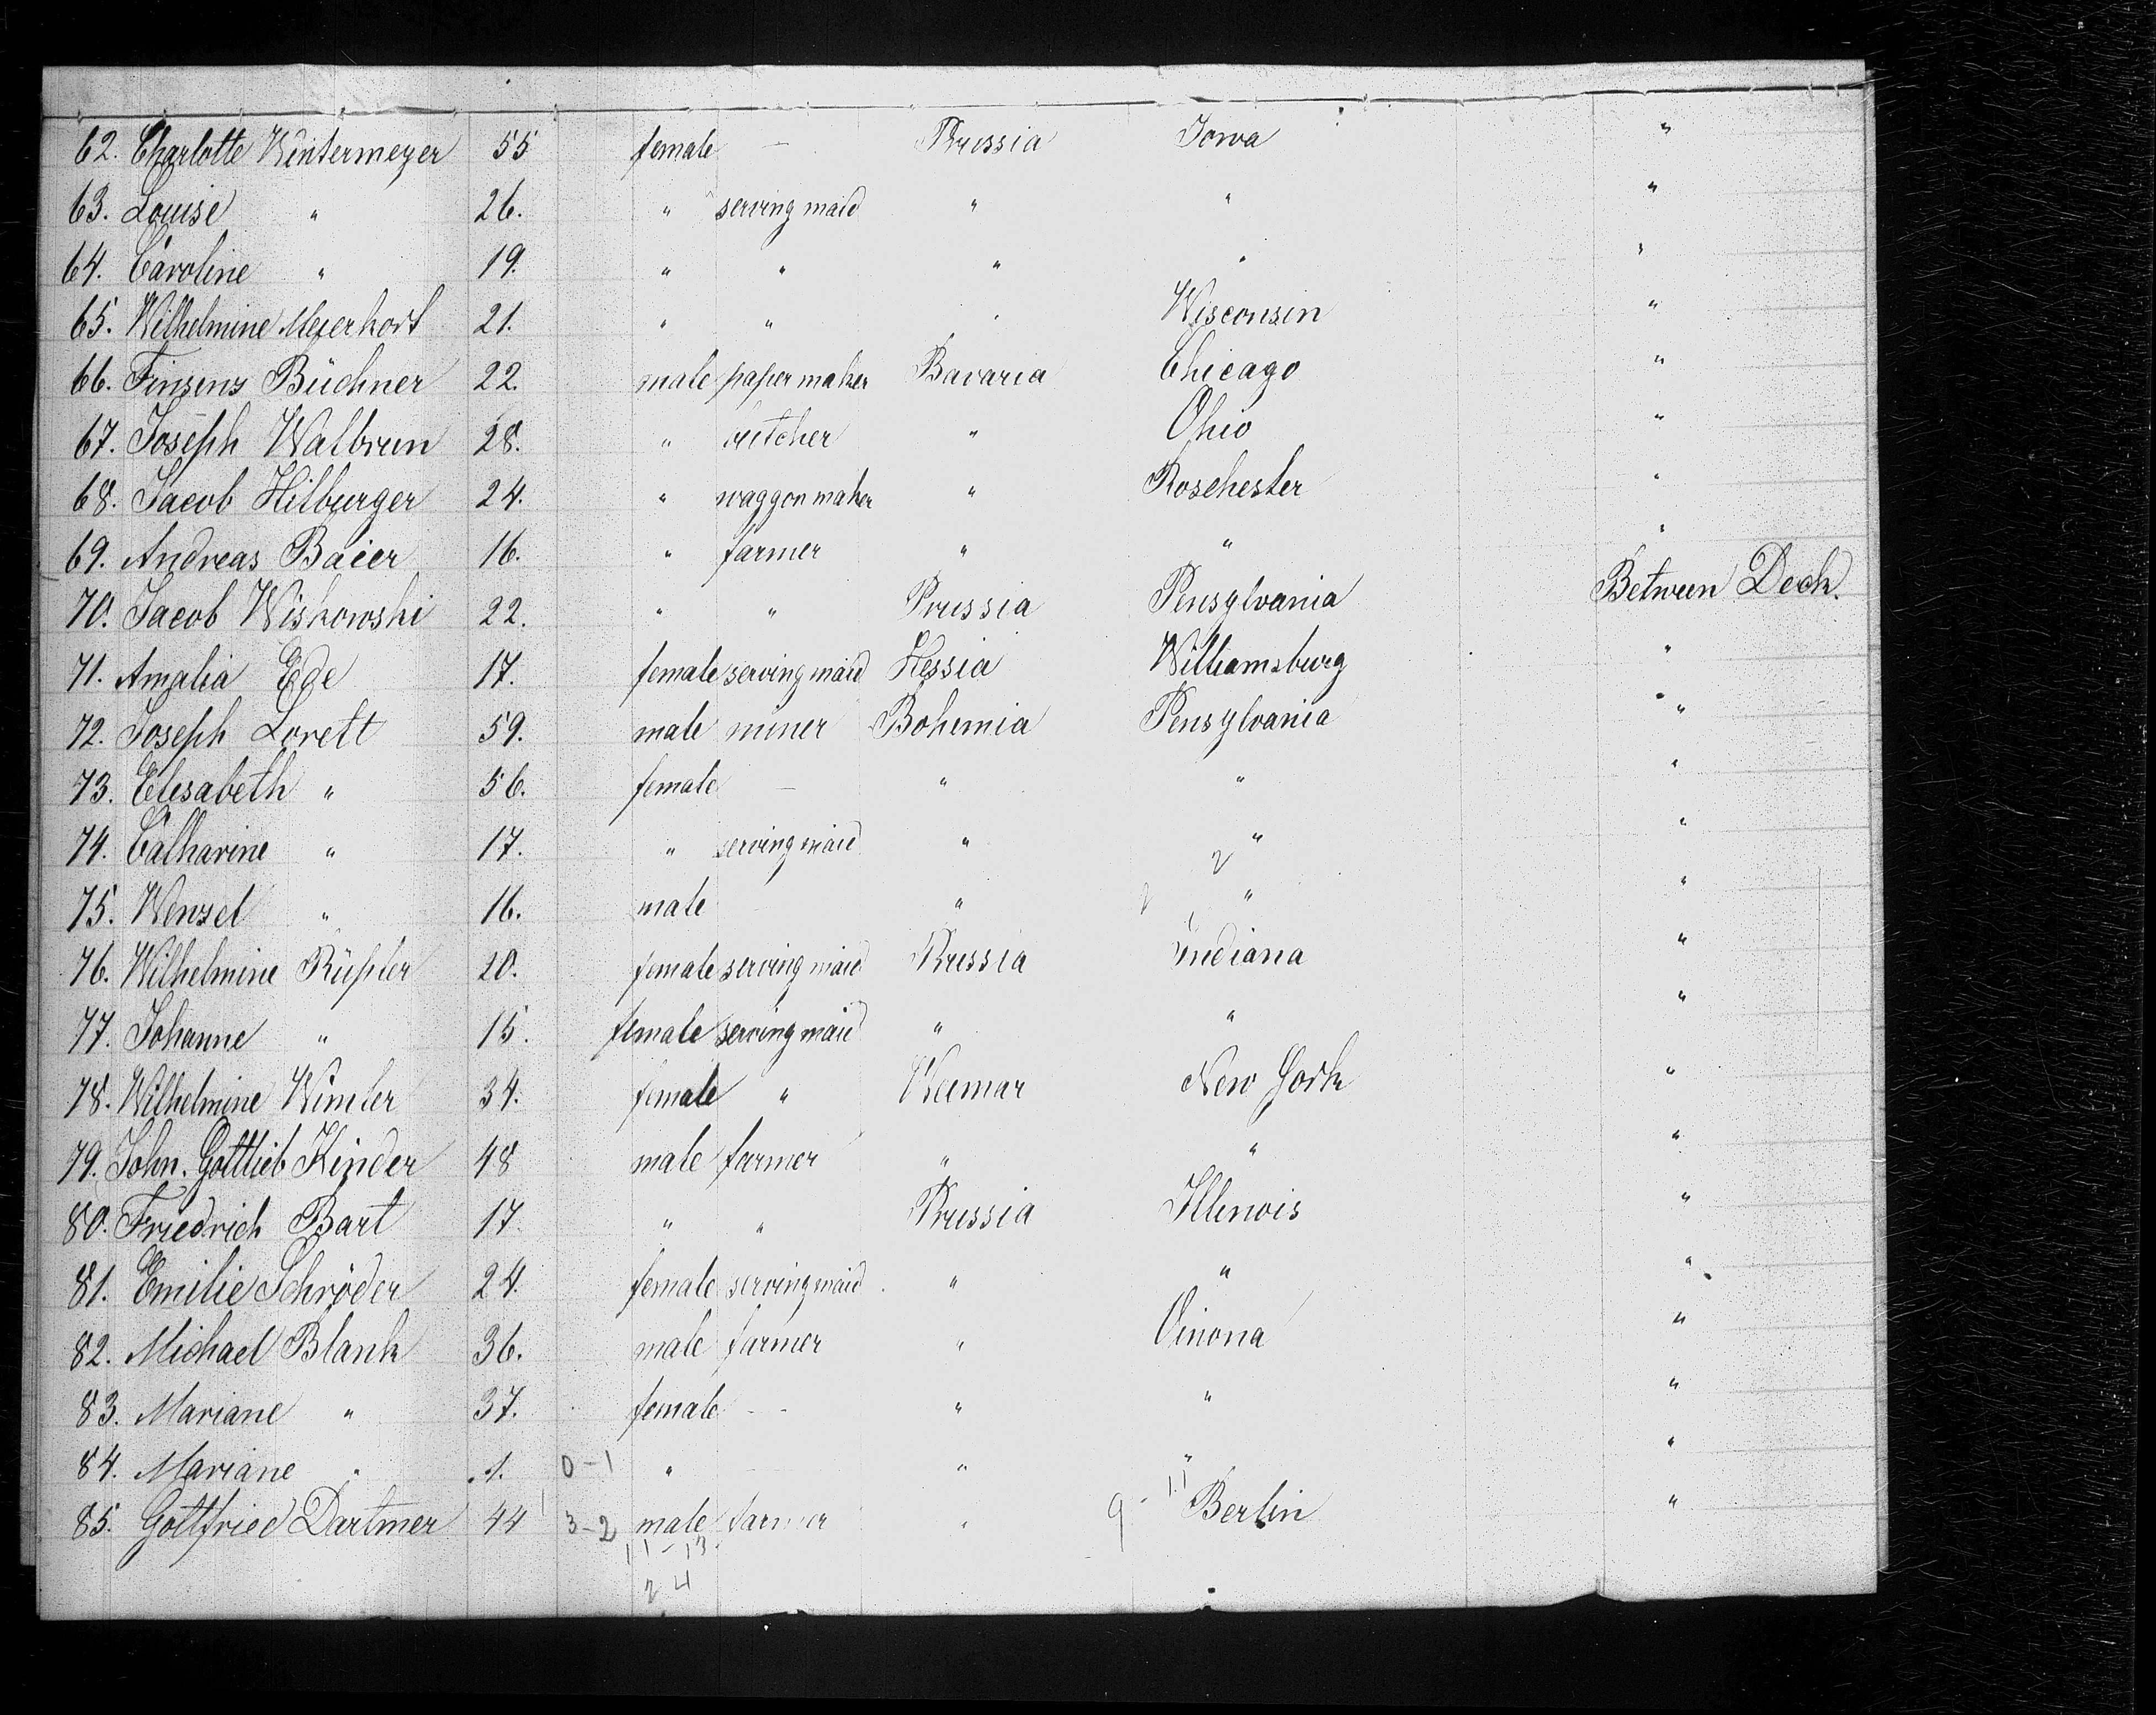 62. Charlotte Wintermeyer 55 female — Prussia Iowa "
63. Louise " 26. " serving maid " " "
64. Caroline " 19. " " " " "
65. Wilhelmine Meierhort 21. " " " Wisconsin "
66. Finsens Büchner 22. male paper maker Bavaria Chicago "
67. Joseph Walbrun 28. " butcher " Ohio "
68. Jacob Hilburger 24. " waggon maker " Roschester "
69. Andreas Baier 16. " farmer " " "
70. Jacob Wiskowski 22. " " Prussia Pensylvania Between Deck.
71. Amalia Ede 17. female serving maid Hessia Williamsburg "
72. Joseph Lorett 59. male miner Bohemia Pensylvania "
73. Elisabeth " 56. female — " " "
74. Catharine " 17. " serving maid " " "
75. Wenzel " 16. male " " "
76. Wilhelmine Rüßler 20. female serving maid Prussia Indiana "
77. Johanne " 15. female serving maid " " "
78. Wilhelmine Wimler 34. female " Weimar New York "
79. John. Gottlieb Kinder 48 male farmer " " "
80. Friedrich Bart 17 " " Prussia Illinois "
81. Emilie Schröder 24. female serving maid " " "
82. Michael Blank 36. male farmer " Vinona "
83. Mariane " 37. female — " " "
84. Mariane " 1. 0-1 " " " "
85. Gottfried Dartmer 44 3-2 male farmer " 9-11 Berlin "
11-13
24